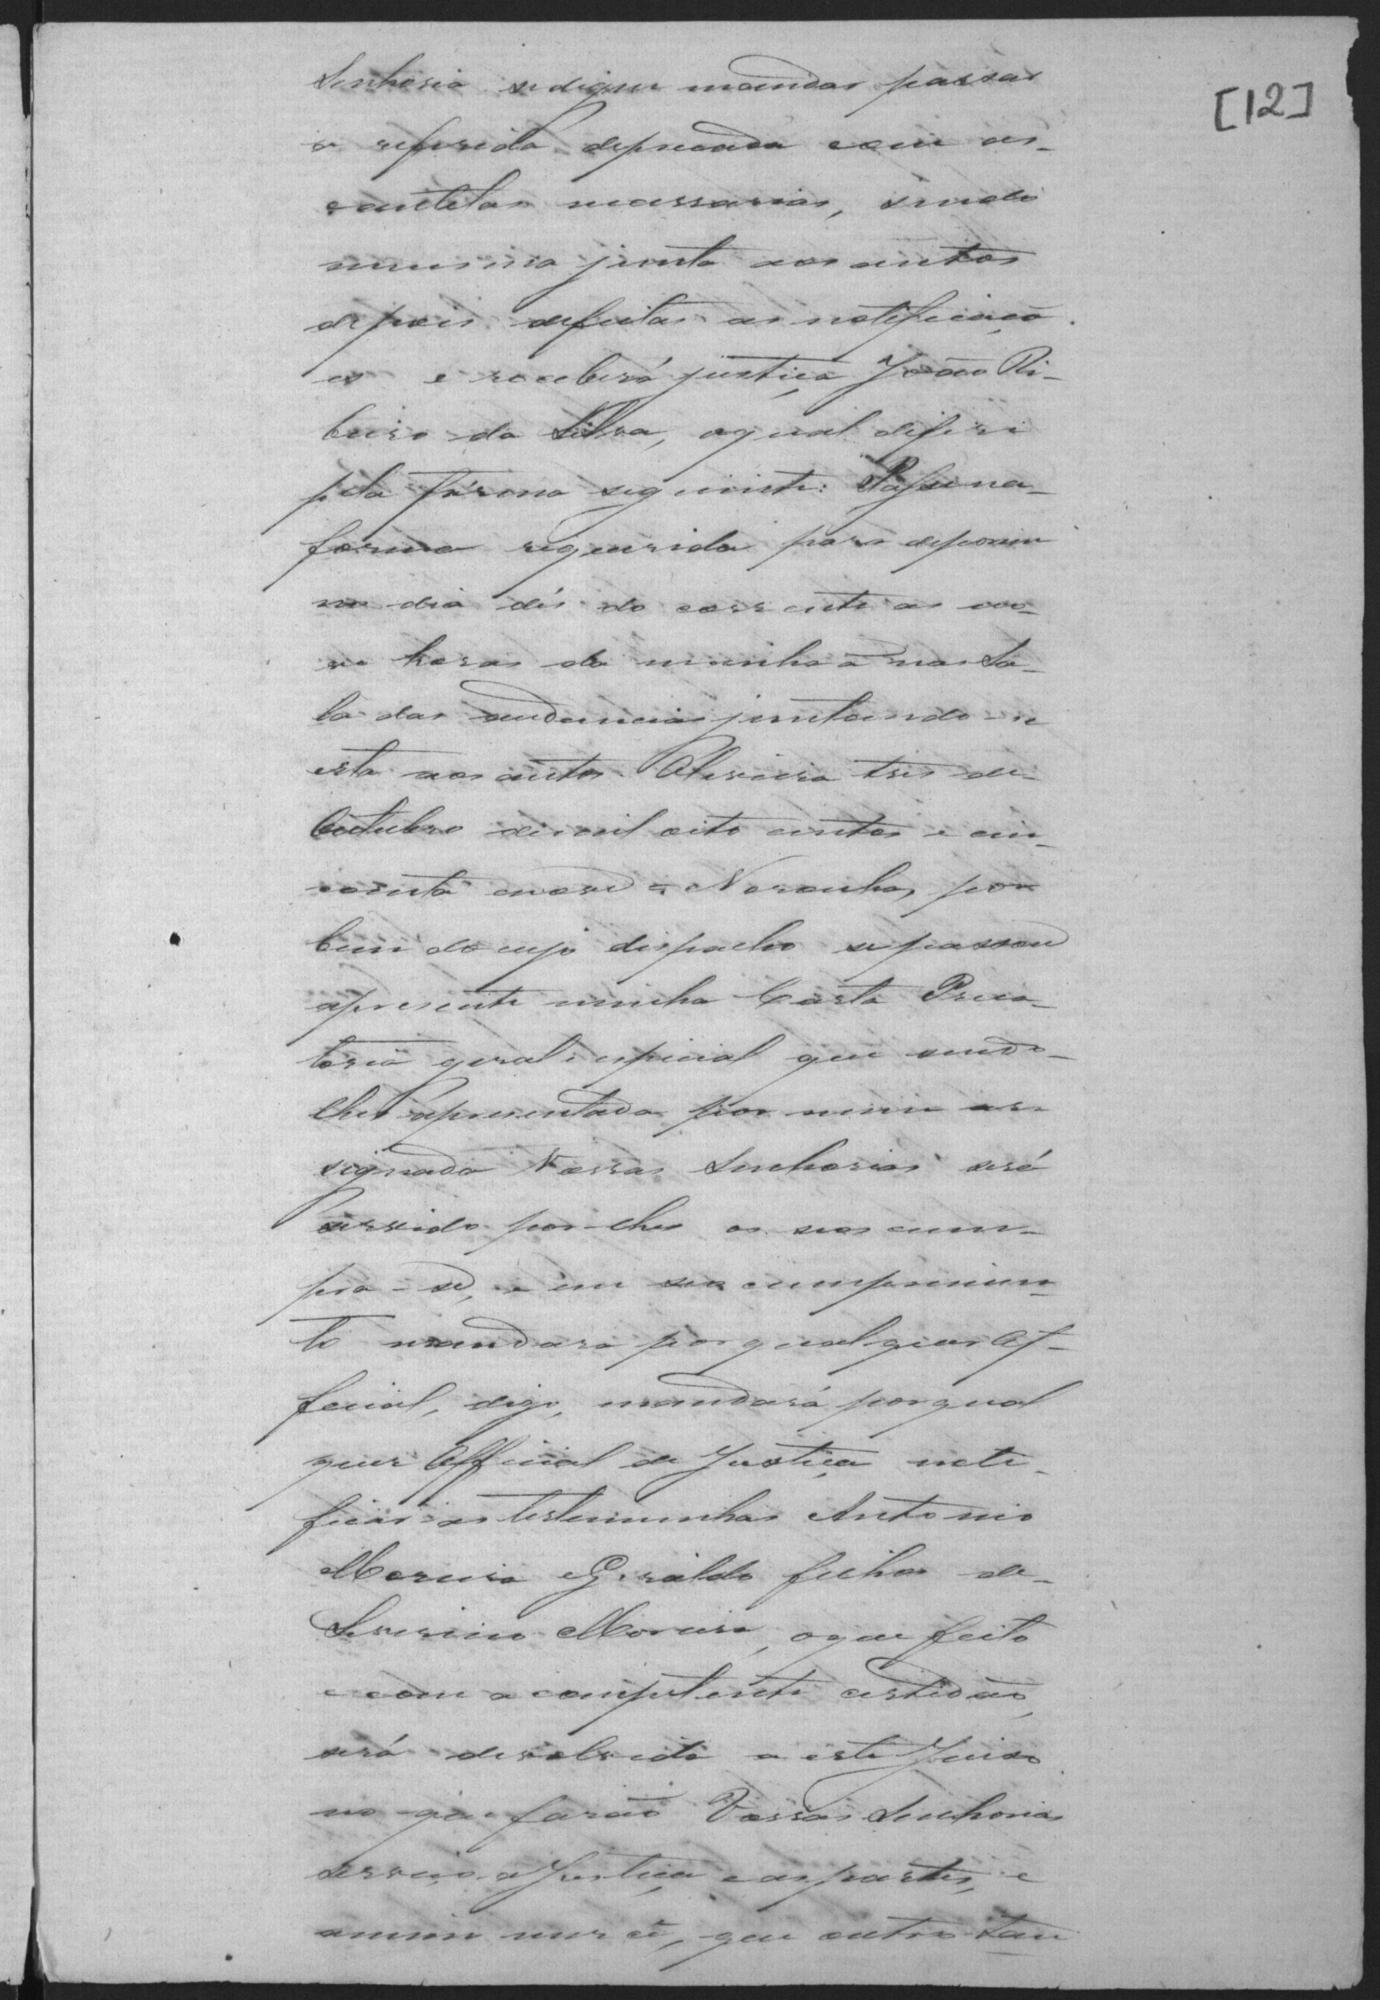 [12]
Senhoria se digne mandar passar
a referida deprecada com as
cautelas necessarias, sendo
mesma junta aos autos
depois de feitas as notificaçõ
es e receberá justiça João Ri-
beiro da Silva, a qual deferi
pela fórma seguinte: Passe na
forma requerida para deporem
no dia dés do corrente as no-
ve horas da manhaã na Sa-
la das audiencias juntando-se
esta aos autos Oliveira tres de
Outubro de mil oito centos e cin-
coenta e nove = Noronha, por
bem do cujo dispacho se passou
apresente minha Carta Preca-
toria geral e especial que sendo-
lhes apresentada por mim as-
signada Vossas Senhorias será
servido por-lhes os seos cum-
pra-se, e em seo cumprimen-
to mandara por qual quer Of-
ficial, digo, mandará por qual
quer Official de Justiça noti-
ficar as testemunhas Antonio
Moreira e Giraldo filhos de
Severino Moreira, o que feito
e com a competente certidão,
será devolvida a este Juiso
no que farão Vossas Senhorias
serviço a Justiça e as partes, e
a mim mercê, que outro tan